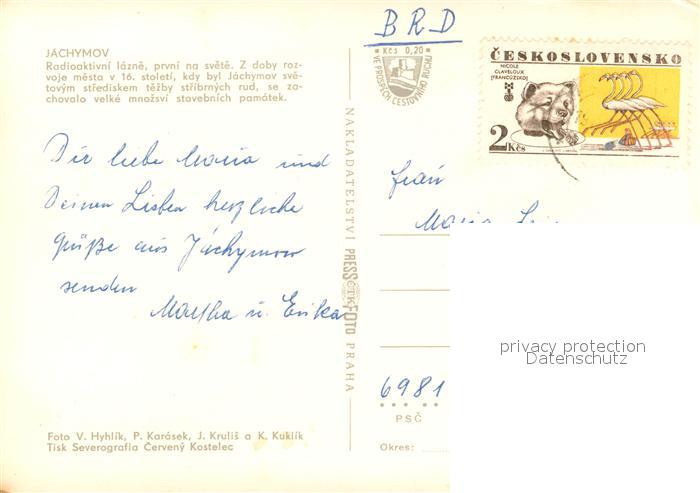 JÁCHYMOV
Radioaktivní lázně, první na světě. Z doby roz-
voje města v 16. století, kdy byl Jáchymov svě-
tovým střediskem těžby stříbrných rud, se za-
chovalo velké množsví stavebních památek.
Dir liebe Maria und
Deinen Lieben herzliche
Grüße aus Jáchymow
senden
Martha u. Erika
Foto V. Hyhlík, P. Karásek, J. Kruliš a K. Kuklík
Tisk Severografia Červený Kostelec
NAKLADATELSTVÍ PRESSFOTO PRAHA
ČTK
BRD
Kčs 0,20
VE PROSPĚCH CESTOVNÍHO RUCHU
ČESKOSLOVENSKO
NICOLE
CLAVELOUX
(FRANCOUZSKO)
2 Kčs
Frau
Maria
6981
PSČ
Okres:
privacy protection
Datenschutz